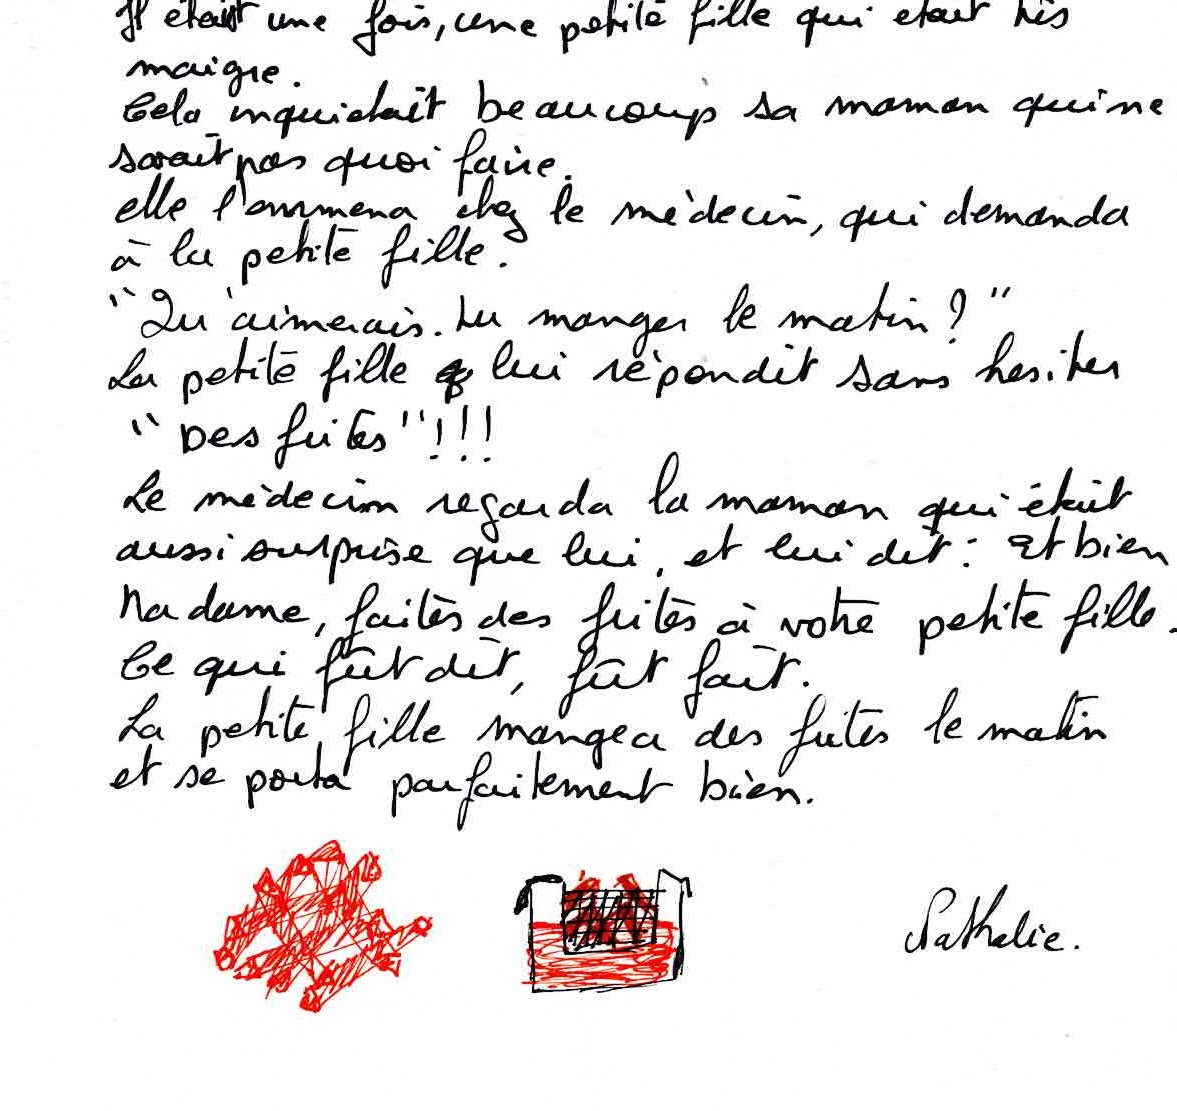 Il était une fois, une petite fille qui etait très
maigre.
Cela inquietait beaucoup sa maman qui ne
savait pas quoi faire.
elle l'emmena chez le médecin, qui demanda
à la petite fille.
"Qu'aimerais-tu manger le matin ?"
La petite fille lui répondit sans hesiter
"Des frites"!!!
Le médecin regarda la maman qui était
aussi surprise que lui, et lui dit: Et bien
Madame, faites des frites à votre petite fille.
Ce qui fût dit, fût fait.
La petite fille mangea des frites le matin
et se porta parfaitement bien.
Nathalie.